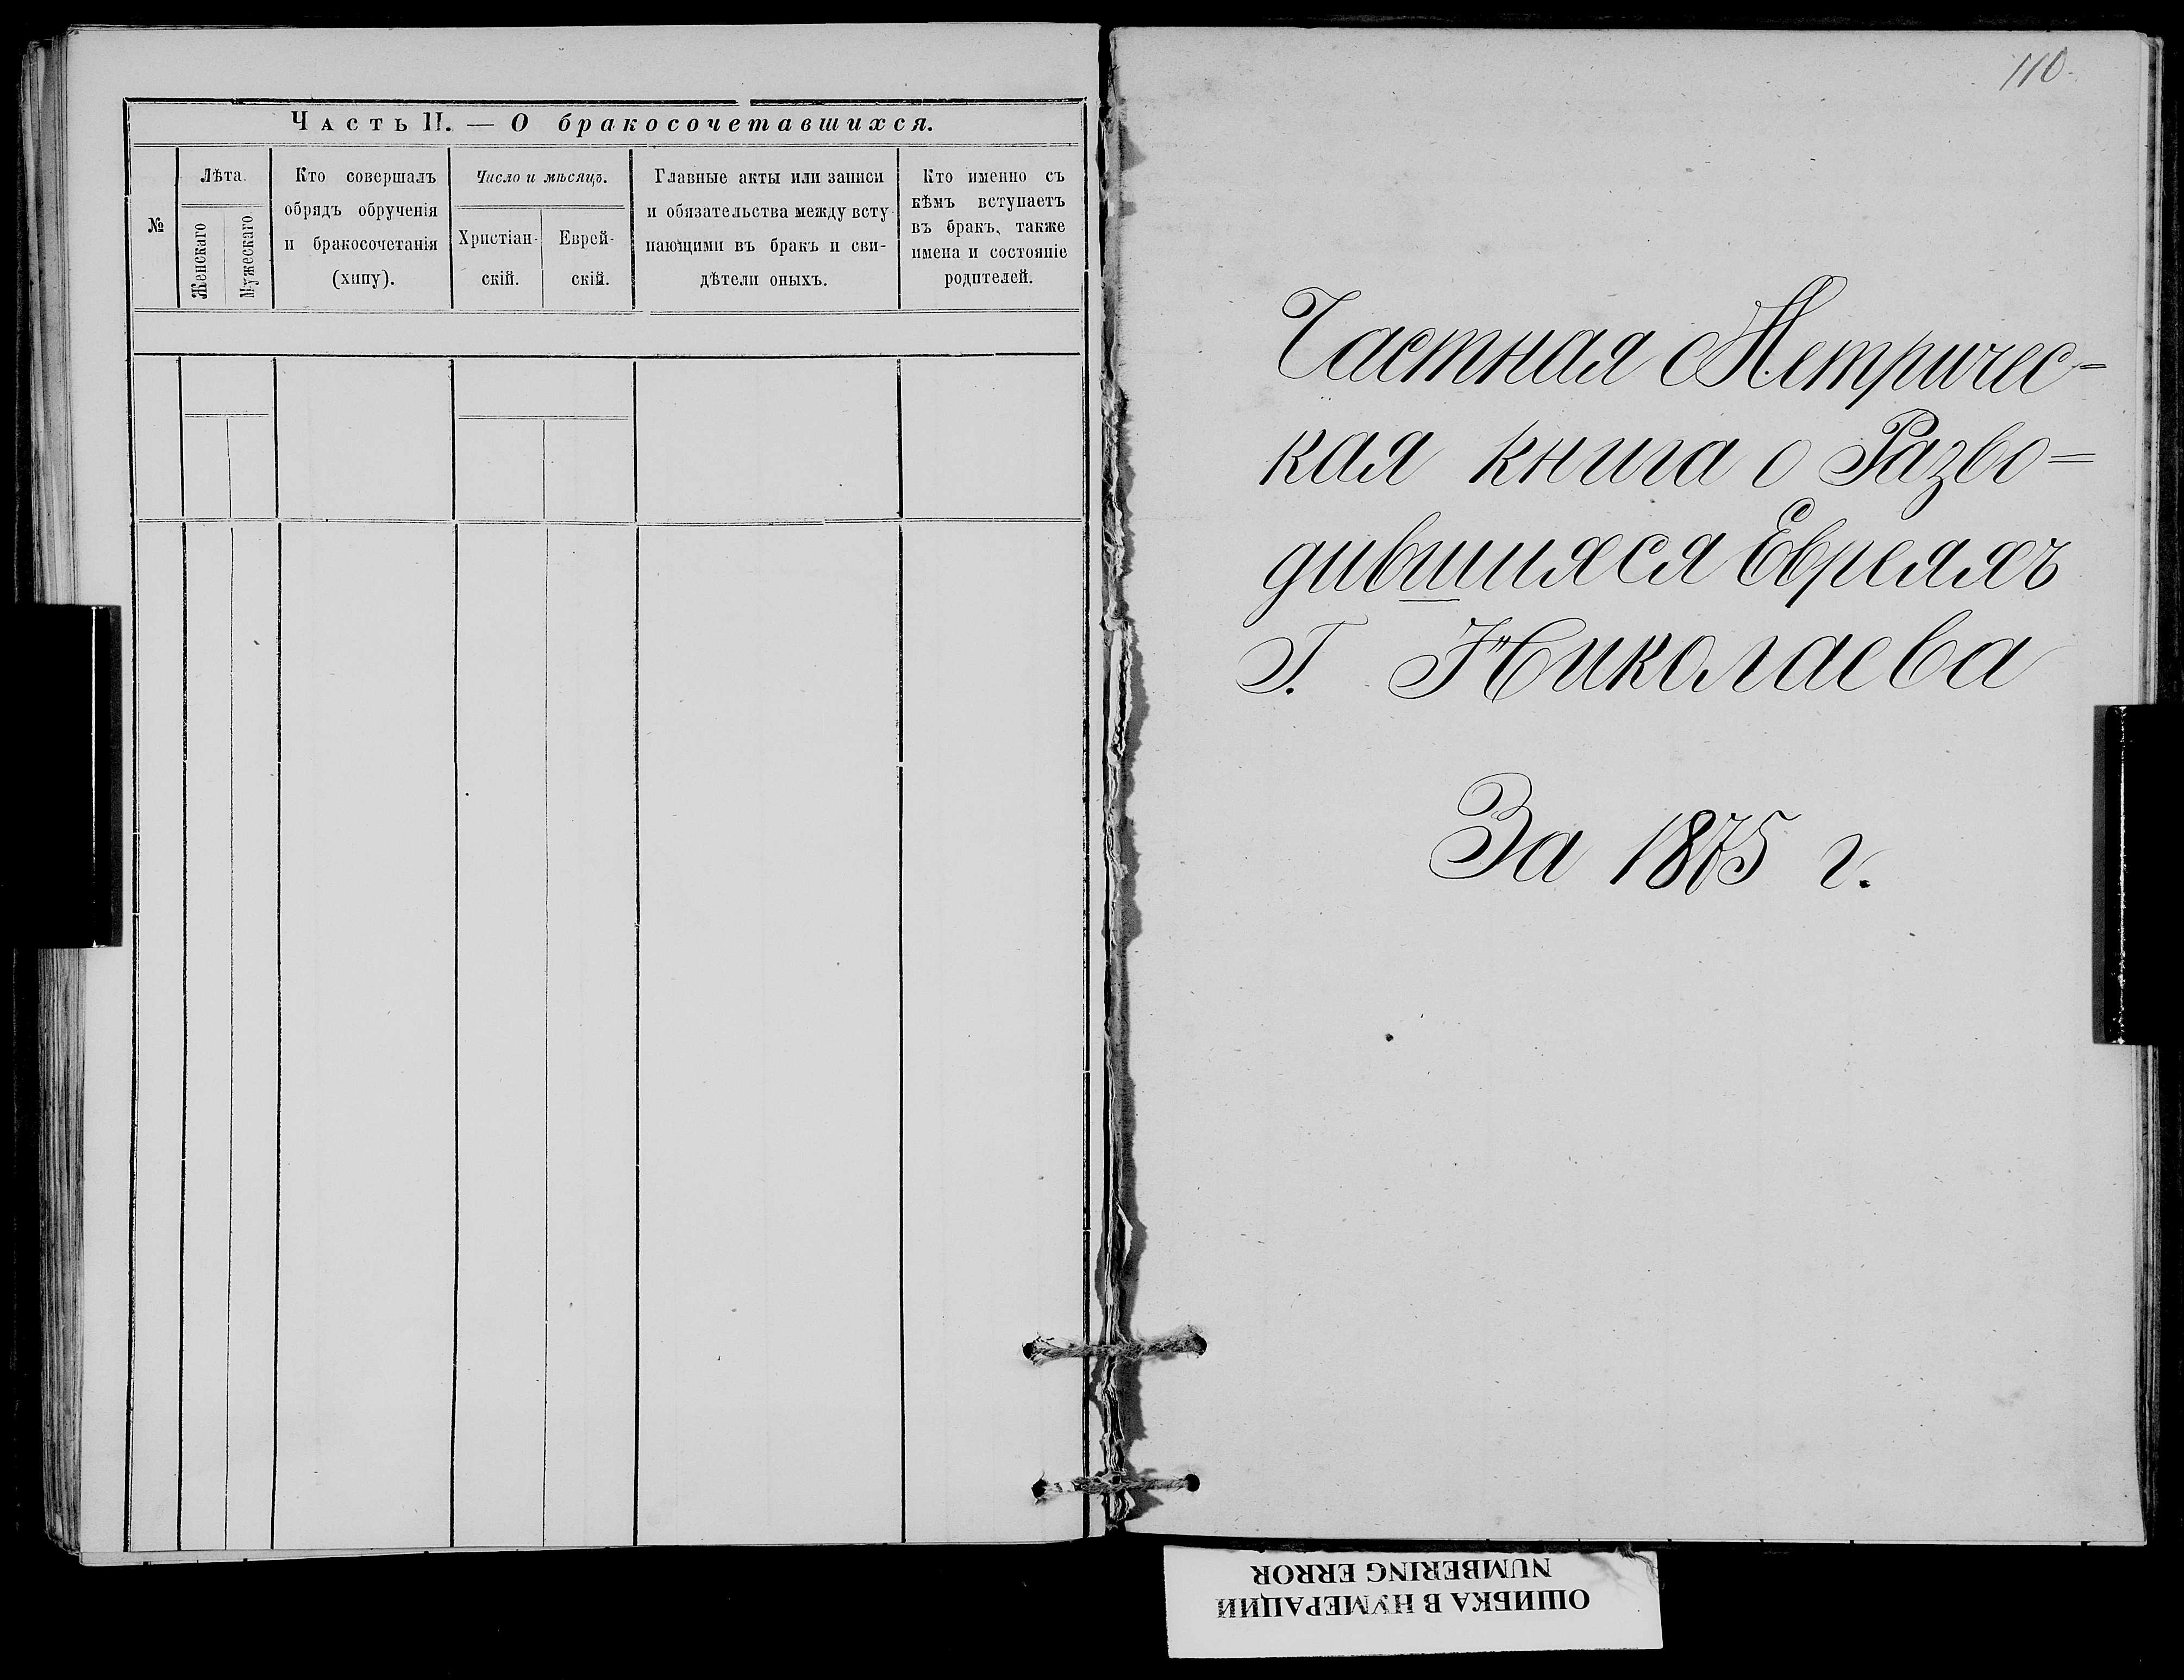 Часть II. — О бракосочетавшихся.
№
Лѣта.
Женскаго
Мужескаго
Кто совершалъ
обрядъ обрученія
и бракосочетанія
(хипу).
Число и мѣсяцъ.
Христіан-
скій.
Еврей-
скій.
Главные акты или записи
и обязательства между всту-
пающими въ бракъ и сви-
дѣтели оныхъ.
Кто именно съ
кѣмъ вступаетъ
въ бракъ, также
имена и состояніе
родителей.
110.
Частная Метричес-
кая книга о Разво=
дившихся Евреяхъ
Г. Николаева
За 1875 г.
ОШИБКА В НУМЕРАЦИИ
NUMBERING ERROR